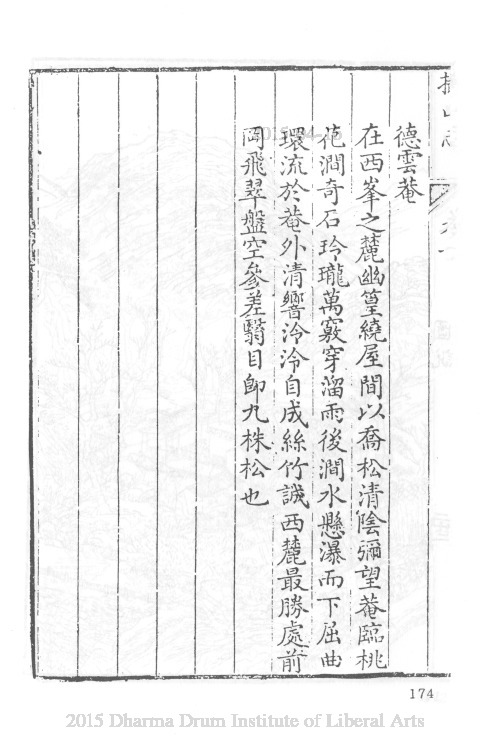 德雲菴
在西峯之麓幽篁繞屋間以喬松清陰彌望菴臨桃
花澗奇石玲瓏萬竅穿溜雨後澗水懸瀑而下屈曲
環流於菴外清響泠泠自成絲竹誠西麓最勝處前
岡飛翠盤空參差翳目卽九株松也
174
2015 Dharma Drum Institute of Liberal Arts